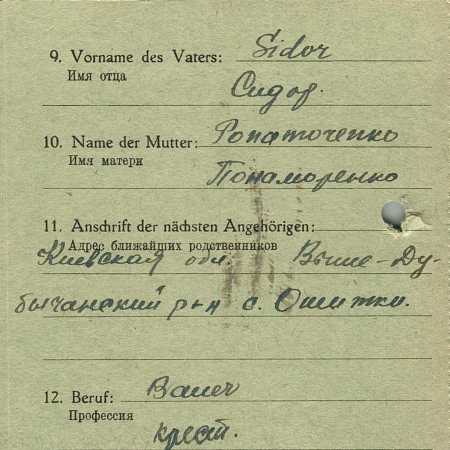 9. Vorname des Vaters: Sidor
Имя отца
Сидор.
10. Name der Mutter: Ponamorenko
Имя матери
Понаморенко
11. Anschrift der nächsten Angehörigen:
Адрес ближайших родственников
Киевская обл. Выше-Ду-
бычанский р-н с. Ошитки.
12. Beruf: Bauer
Профессия
крест.